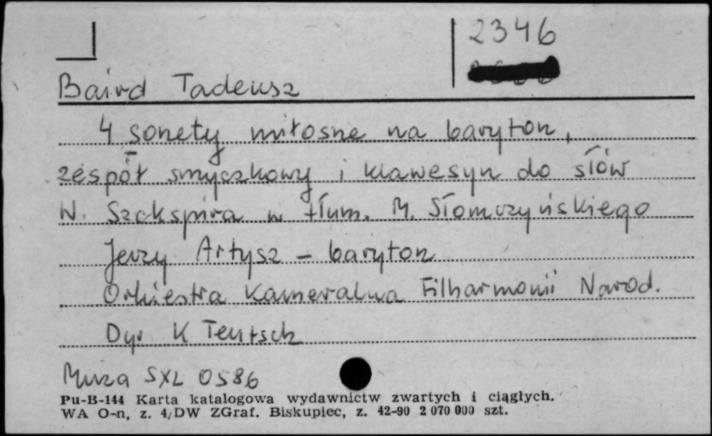 2346
Baird Tadeusz
4 sonety miłosne na baryton,
zespół smyczkowy i klawesyn do słów
W. Szekspira w tłum. M. Słomczyńskiego
Jerzy Artysz – baryton
Orkiestra Kameralna Filharmonii Narod.
Dyr K Teutsch
Muza SXL 0586
Pu-B-144 Karta katalogowa wydawnictw zwartych i ciągłych.
WA O-n, z. 4/DW ZGraf. Biskupiec, z. 42-90 2 070 000 szt.